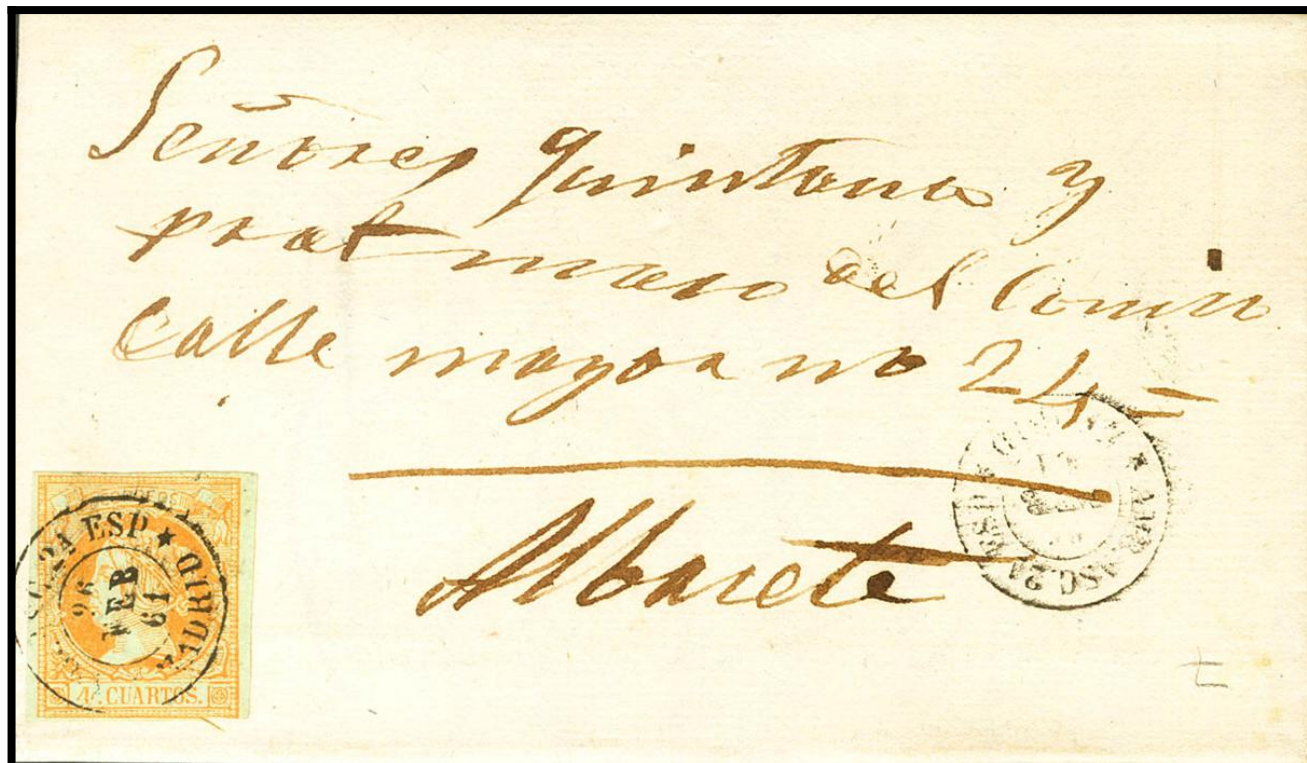 Señores Quintana y
prat maro del Comer
Calle mayor no 24=
Albacete
ESP ★ MADRID
26
FEB
61
4 CUARTOS.